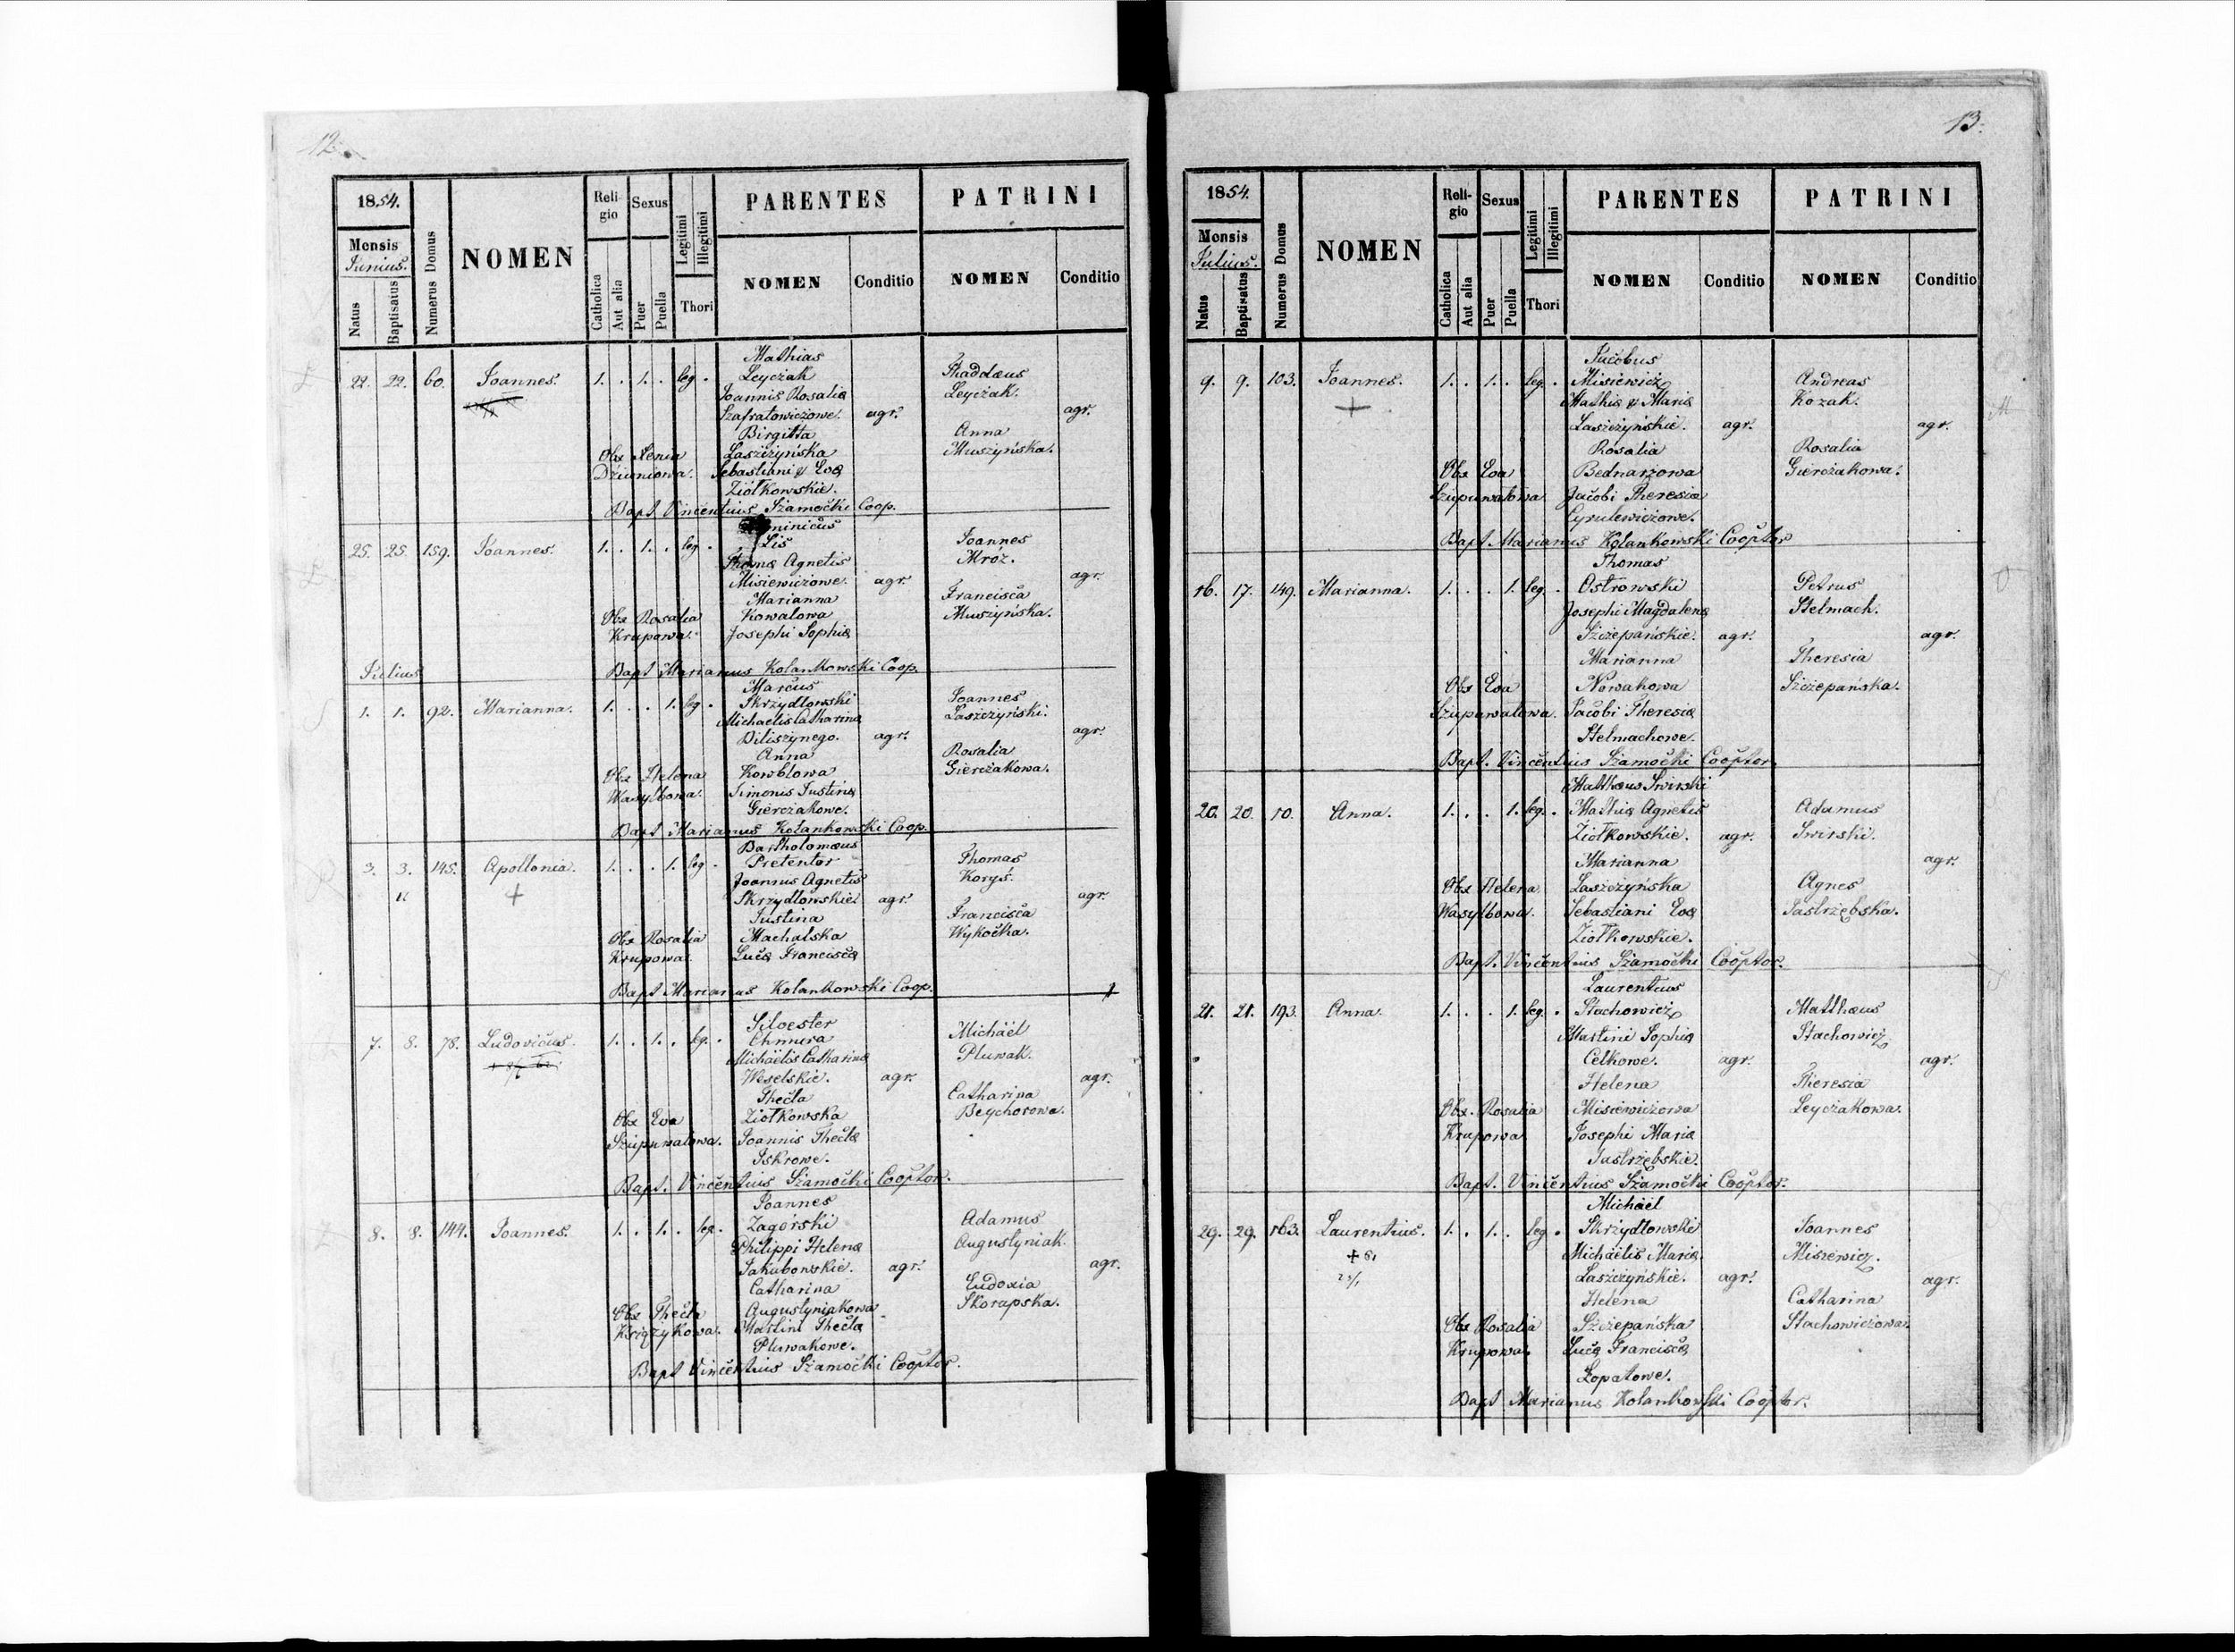 12.
1854.
Mensis
Junius.
Natus
Baptisatus
Numerus Domus
NOMEN
Religio
Catholica
Aut alia
Sexus
Puer
Puella
Legitimi
Illegitimi
Thori
PARENTES
NOMEN
Conditio
PATRINI
NOMEN
Conditio
Mathias
22. 22. 60. Joannes. 1. . 1. . leg. . Leyczak Thaddæus
Joannis Rosaliæ Leyczak.
Szafratowiczowe. agr. agr.
Birgitta Anna
Obs Xenia Łaszczyńska Muszyńska.
Dziuniowa. Sebastiani & Evæ
Ziółkowskie.
Bapt Vincentius Szamocki Coop.
25. 25. 159. Joannes. 1. . 1. . leg. . Lis Joannes
Thomæ Agnetis Mróz.
Misiewiczowe. agr. agr.
Marianna Francisca
Obs Rosalia Kowalowa Muszyńska.
Krupowa. Josephi Sophiæ
Julius Bapt Marianus Kolankowski Coop.
Marcus
1. 1. 92. Marianna. 1. . . 1. leg. . Skrzydłowski Joannes
Michaelis Catharinæ Łaszczyński.
Diliszynego. agr. agr.
Anna Rosalia
Obs Helena Kowblowa Gierczakowa.
Wasylbowa. Simonis Justinæ
Gierczakowe.
Bapt Marianus Kolankowski Coop.
Bartholomæus
3. 3. 145. Apollonia. 1. . . 1. leg. . Pretentor Thomas
Joannis Agnetis Koryś.
Skrzydłowskie. agr. agr.
Justina Francisca
Obs Rosalia Machalska Wykočka.
Krupowa. Lucæ Franciscæ
Bapt Marianus Kolankowski Coop.
Silvester
7. 8. 78. Ludovicus. 1. . 1. . leg. . Chmura Michäël
Michäelis Catharinæ Pluwak.
Weselskie. agr. agr.
Thecla Catharina
Obs Eva Ziółkowska Beychorowa.
Szupuwałowa. Joannis Theclæ
Iskrowe.
Bapt. Vincentius Szamocki Cooptor.
Joannes
8. 8. 144. Joannes. 1. . 1. . leg. Zagórski Adamus
Philippi Helenæ Augustyniak.
Jakubowskie. agr. agr.
Catharina Eudoxia
Obs Thecla Augustyniakowa Skorapska.
Krzązykowa. Martini Theclæ
Pluwakowe.
Bapt Vincentius Szamocki Cooptor.
13.
1854.
Mensis
Julius.
Natus
Baptisatus
Numerus Domus
NOMEN
Religio
Catholica
Aut alia
Sexus
Puer
Puella
Legitimi
Illegitimi
Thori
PARENTES
NOMEN
Conditio
PATRINI
NOMEN
Conditio
Jacobus
9. 9. 103. Joannes. 1. . 1. . leg. . Misiewicz Andreas
Mathiæ & Mariæ Kozak.
Łaszczyńskie. agr. agr.
Rosalia Rosalia
Obs Eva Bednarzowa Gierczakowa.
Szupuwałowa. Jacobi Theresiæ
Cyrulewiczowe.
Bapt Marianus Kolankowski Cooptor
Thomas
16. 17. 149. Marianna. 1. . . 1. leg. . Ostrowski Petrus
Josephi Magdalenæ Stelmach.
Szczepańskie. agr. agr.
Marianna Theresia
Obs Eva Nowakowa Szczepańska.
Szupuwałowa. Jacobi Theresiæ
Stelmachowe.
Bapt. Vincentius Szamocki Cooptor.
Matthæus Swirski
20. 20. 10. Anna. 1. . . 1. leg. . Mathiæ Agnetis Adamus
Ziółkowskie. agr. Swirski.
Marianna agr.
Obs Helena Łaszczyńska Agnes
Wasylbowa. Sebastiani Evæ Jastrzębska.
Ziółkowskie.
Bapt. Vincentius Szamocki Cooptor.
Laurentius
21. 21. 193. Anna. 1. . . 1. leg. . Stachowicz Matthæus
Martini Sophiæ Stachowicz
Celkowe. agr. agr.
Helena Theresia
Obs. Rosalia Misiewiczowa Leyczakowa.
Krupowa Josephi Mariæ
Jastrzębskie.
Bapt. Vincentius Szamocki Cooptor.
Michäel
29. 29. 163. Laurentius. 1. . 1. . leg. . Skrzydłowski Joannes
Michäëlis Mariæ Miszewicz.
Łaszczyńskie. agr. agr.
Helena Catharina
Obs Rosalia Szczepańska Stachowiczowa.
Krupowa. Lucæ Franciscæ
Łopatowe.
Bapt Marianus Kolankowski Cooptor.